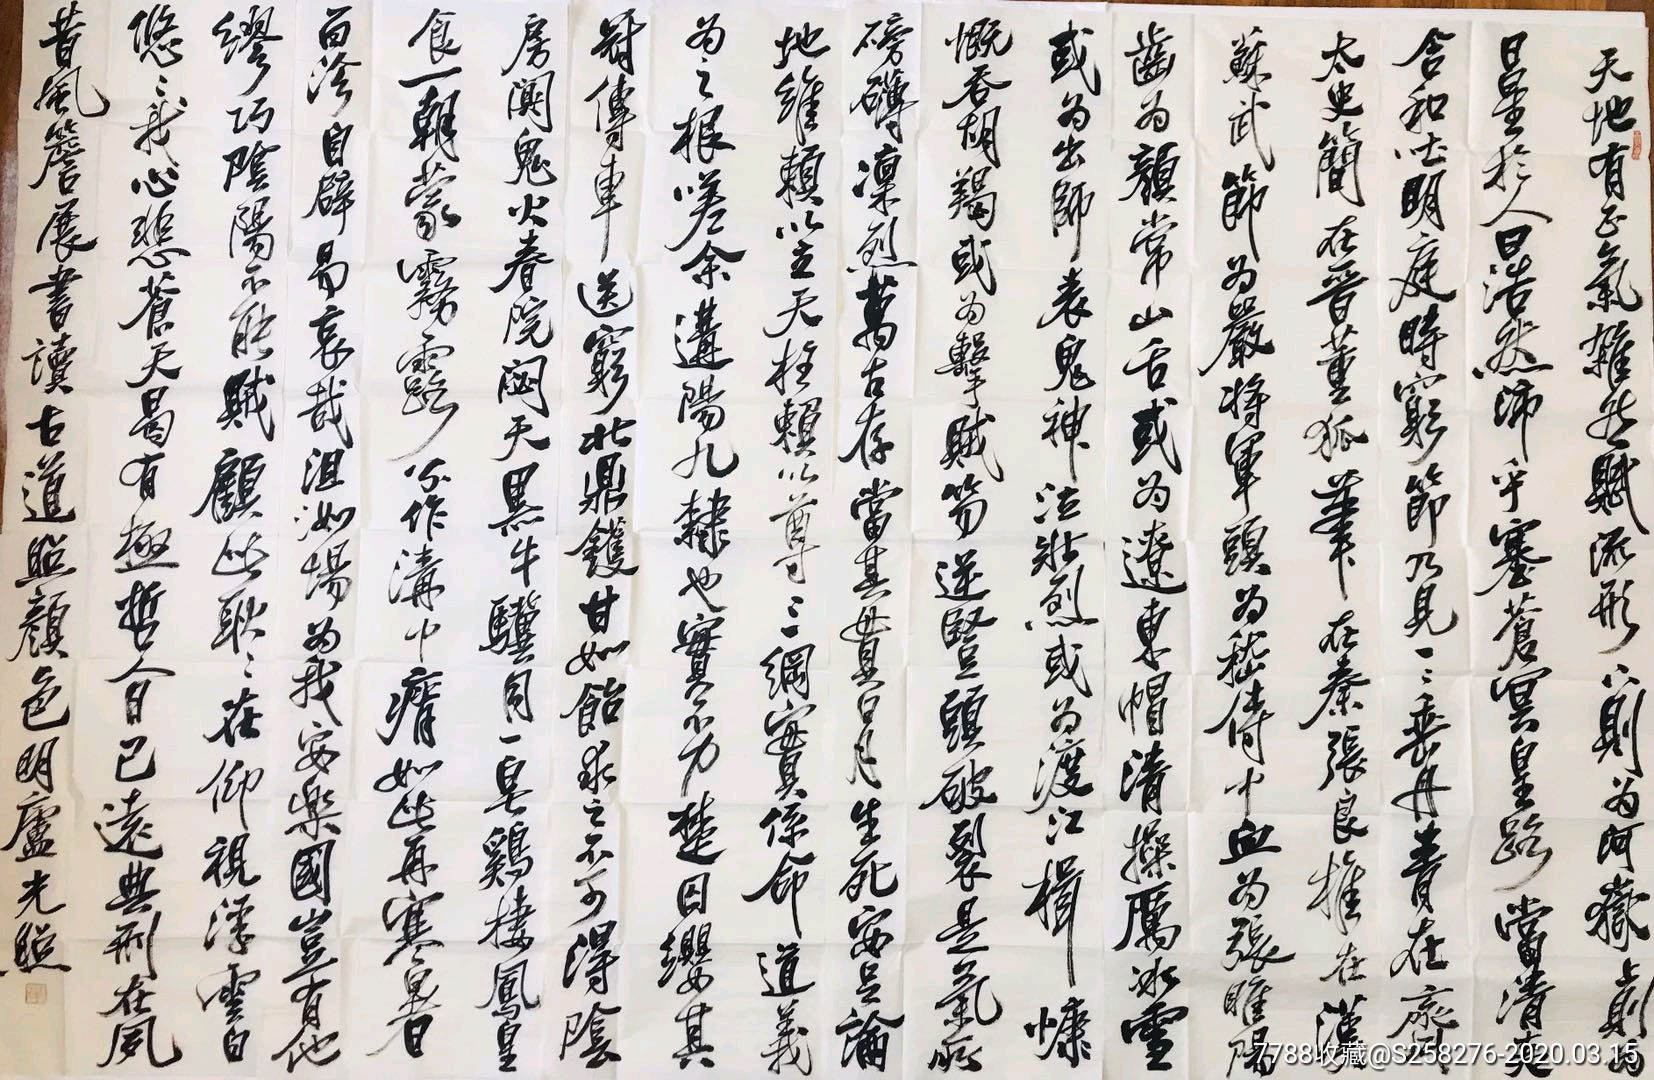 天地有正氣雜然賦流形下則為河嶽上則為
日星於人曰浩然沛乎塞蒼冥皇路當清夷
含和吐明庭時窮節乃見一二垂丹青在齊
太史簡在晉董狐筆在秦張良椎在漢
蘇武節為嚴將軍頭為嵇侍中血為張睢陽
齒為顏常山舌或為遼東帽清操厲冰雪
或為出師表鬼神泣壯烈或為渡江楫慷
慨吞胡羯或為擊賊笏逆豎頭破裂是氣所
磅礴凜烈萬古存當其貫日月生死安足論
地維賴以立天柱賴以尊三綱實係命道義
為之根嗟余遘陽九隸也實不力楚囚纓其
冠傳車送窮北鼎鑊甘如飴求之不可得陰
房闃鬼火春院閟天黑牛驥同一皂鷄棲鳳皇
食一朝蒙霧露分作溝中瘠如此再寒暑
百沴自辟易哀哉沮洳場為我安樂國豈有他
繆巧陰陽不能賊顧此耿耿在仰視浮雲白
悠悠我心悲蒼天曷有極哲人日已遠典刑在夙
昔風簷展書讀古道照顏色明廬光照
7788收藏@S258276-2020.03.15